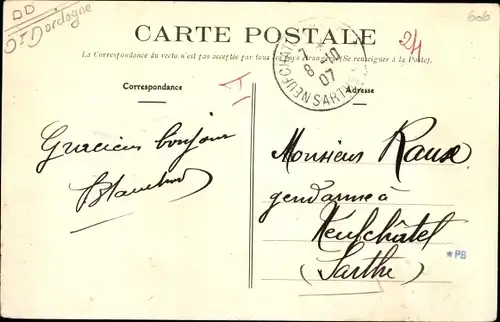 DD
Dt Dordogne
606
CARTE POSTALE
24
La Correspondance du recto n'est pas acceptée par tous les pays étrangers (Se renseigner à la Poste).
NEUFCHATEL
7
8-10
07
NEUFCH SARTHE
Correspondance
Adresse
Gracieux bonjour
Blanchard
Monsieur
gendarme à
Neufchâtel
(Sarthe)
*PB